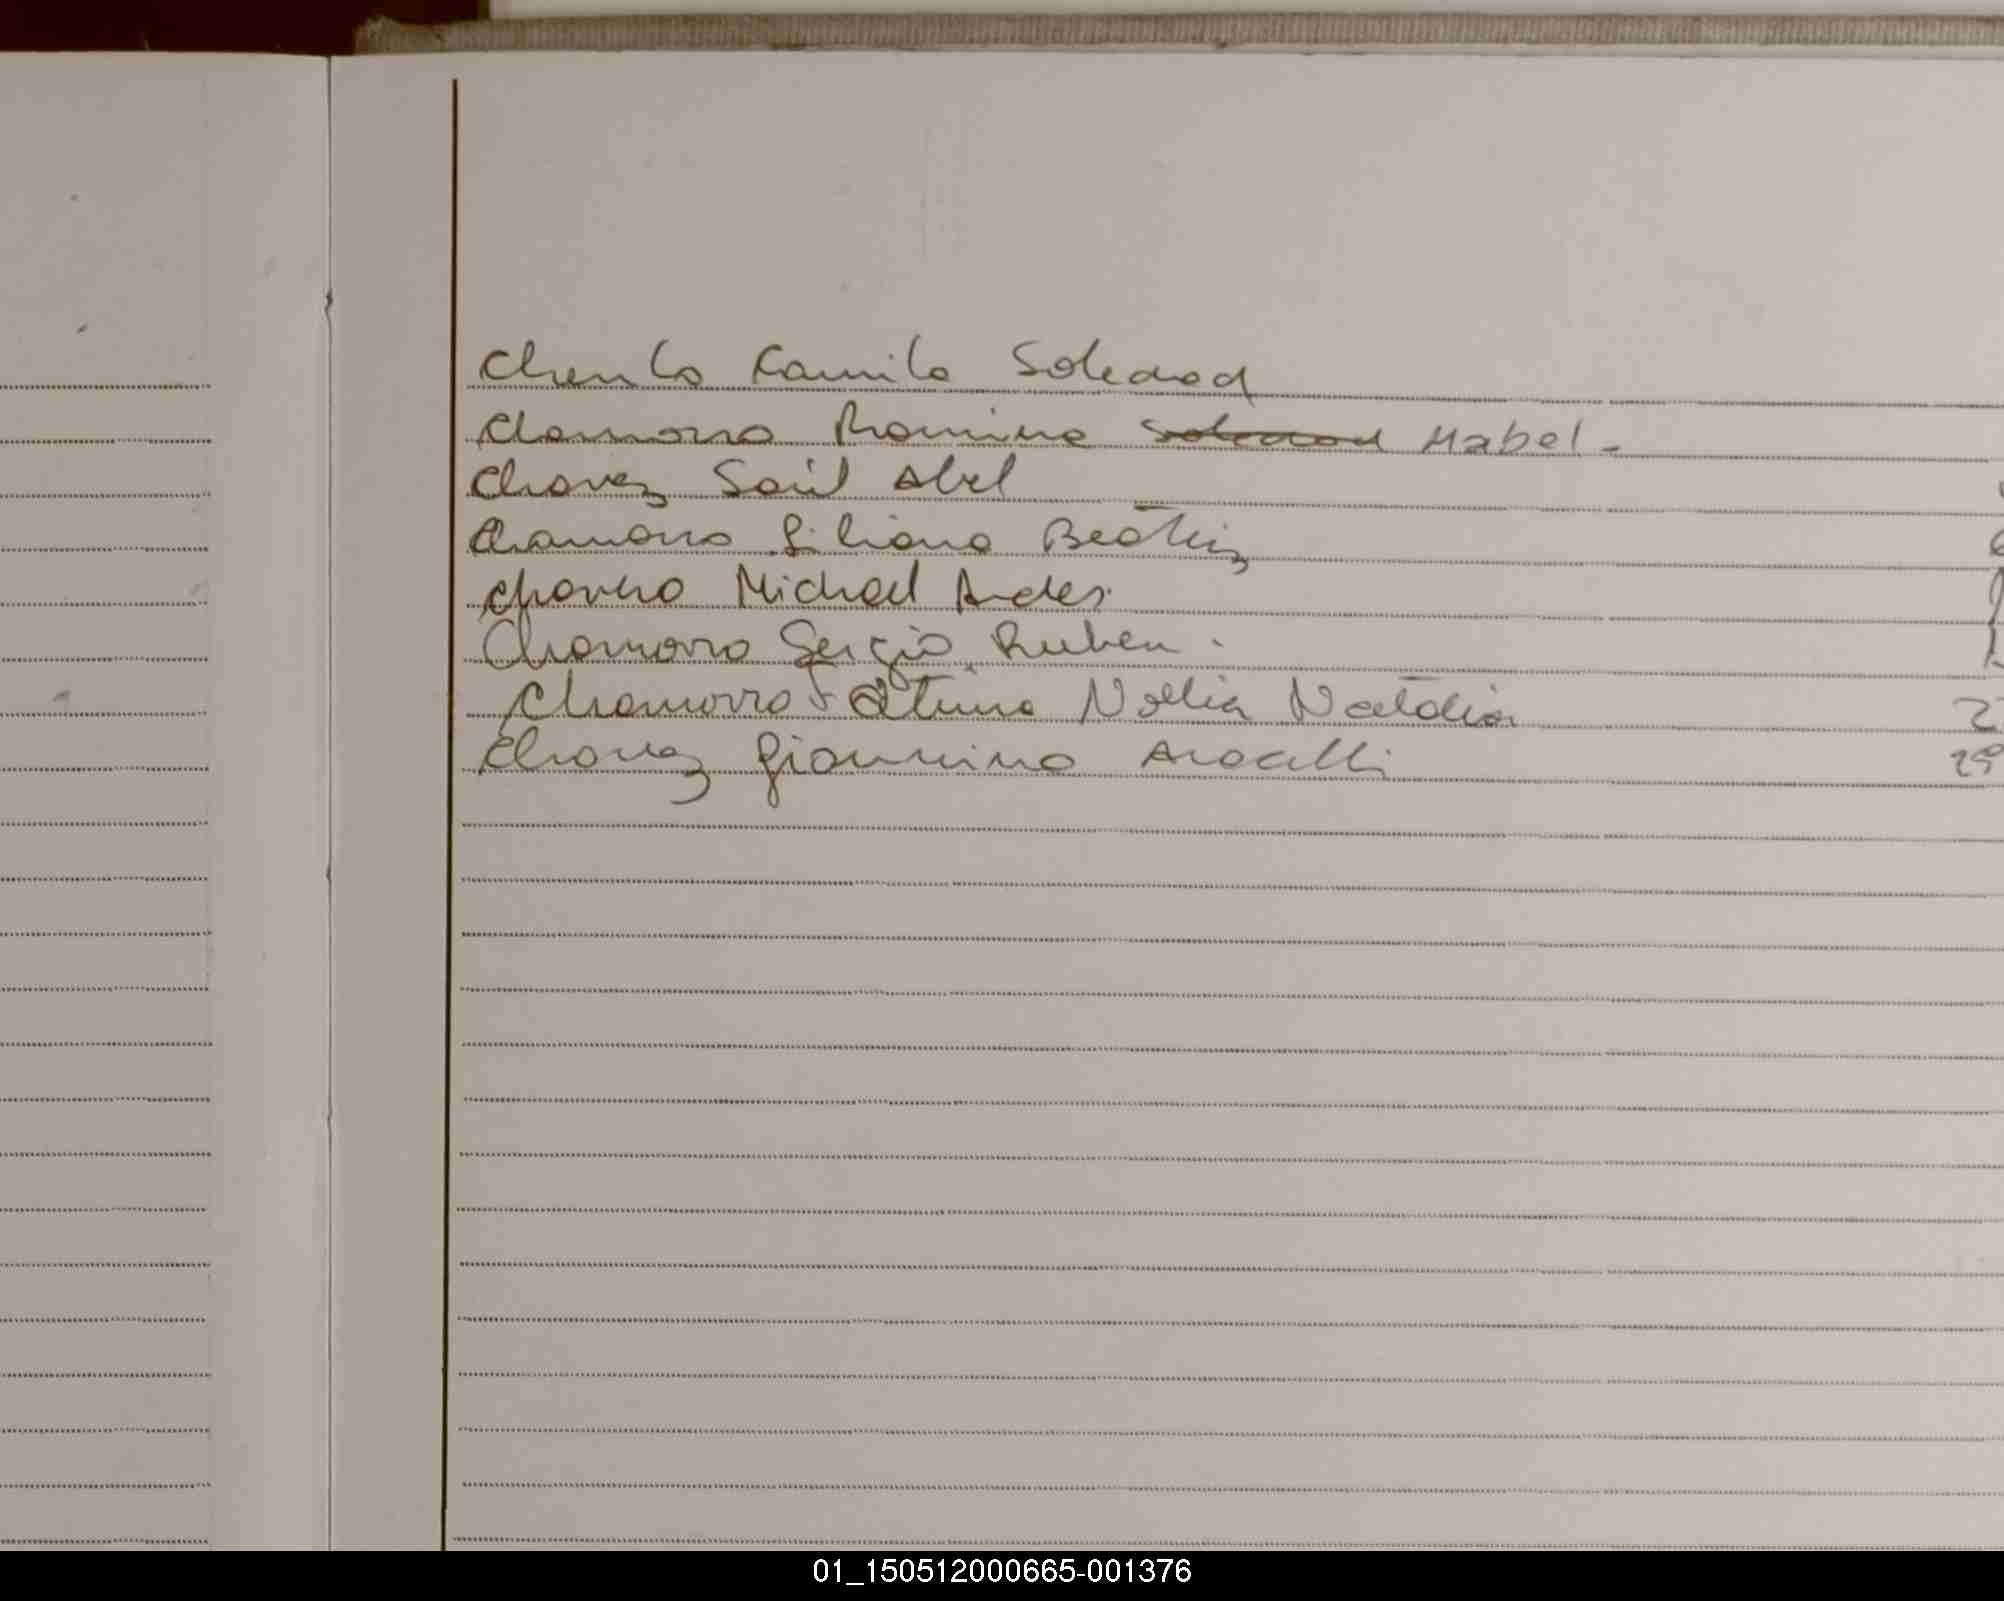 Camila Soledad
Chamorro Romina Soledad Mabel -
Chavez Saúl Abel
Chamorro Liliana Beatriz
Michael
Chamorro Sergio Ruben.
Chamorro Fatima Noelia Natalia 2
Chavez Giannina Aracelli 29
01_150512000665-001376